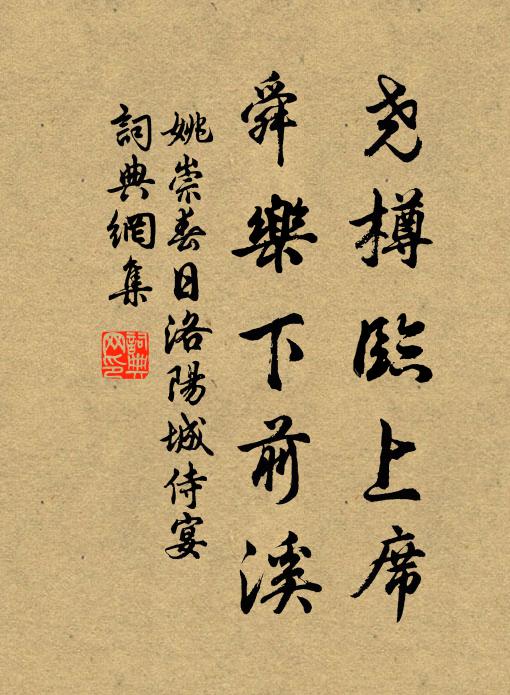 尧樽臨上席
舜樂下前溪
姚崇春日洛陽城侍宴
詞典網集
詞典
网印